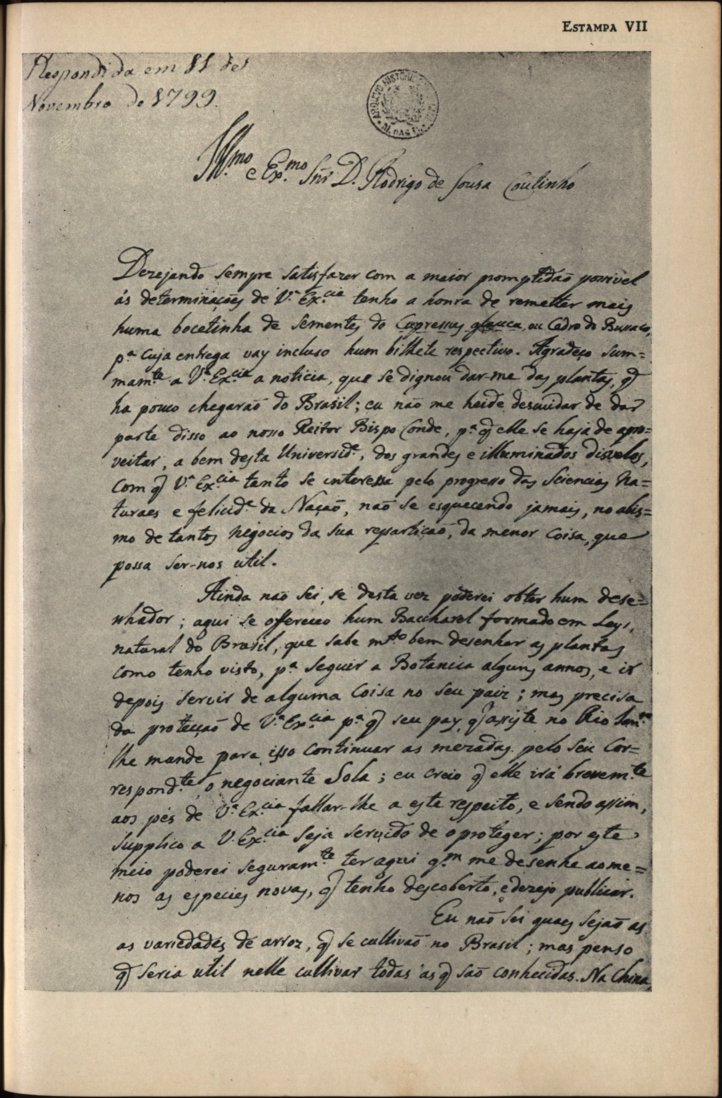 ESTAMPA VII
Respondida em 11 de
Novembro de 1799.
Ill.mo e Ex.mo Snr D. Rodrigo de Sousa Coutinho
Dezejando sempre satisfazer com a maior promptidaõ possivel
ás determinações de V.ª Ex.cia tenho a honra de remetter mais
huma bocetinha de sementes do Cupressus glauca, ou Cedro do Bussaco,
p.ª cuja entrega vay incluso hum bilhete respectivo. Agradeço sum=
mam.te a V.ª Ex.cia a noticia, que se dignou dar-me das plantas, q̃
ha pouco chegaraõ do Brasil; eu naõ me heide descuidar de dar
parte disso ao nosso Reitor Bispo Conde, p.ª q̃ elle se haja de apro=
veitar, a bem desta Universid.e, dos grandes e illuminados disvelos,
com q̃ V.ª Ex.cia tanto se interessa pelo progresso das Sciencias Na=
turaes e felicid.e da Naçaõ, naõ se esquecendo jamais, no abis=
mo de tantos negocios da sua repartiçaõ, da menor coisa, que
possa ser-nos util.
Ainda naõ sei, se desta vez poderei obter hum dese=
nhador; aqui se offereceo hum Baccharel formado em Leys,
natural do Brasil, que sabe m.to bem desenhar as plantas
como tenho visto, p.ª seguir a Botanica alguns annos, e ir
depois servir de alguma coisa no seu paiz; mas precisa
da protecçaõ de V.ª Ex.cia p.ª q̃ seu pay, q̃ assiste no Rio
lhe mande para isso continuar as mezadas pelo seu Cor=
respond.te o negociante Sola; eu creio q̃ elle irá brevem.te
aos pés de V.ª Ex.cia fallar-lhe a este respeito, e sendo assim,
supplico a V. Ex.cia seja servido de o proteger; por este
meio poderei seguram.te ter aqui q.m me desenhe ao me=
nos as especies novas, q̃ tenho descoberto, e dezejo publicar.
Eu naõ sei quaes sejaõ as
as variedades de arroz, q̃ se cultivaõ no Brasil; mas penso
q̃ seria util nelle cultivar todas as q̃ saõ conhecidas. Na China,